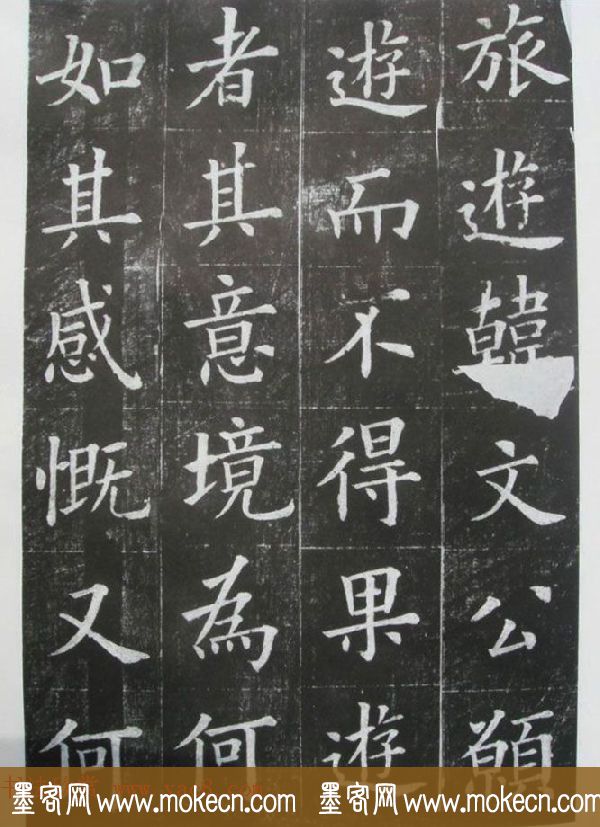 旅遊韓文公願
遊而不得果遊
者其意境為何
如其感慨又何
墨客网 www.mokecn.com 墨客网 www.mokecn.com